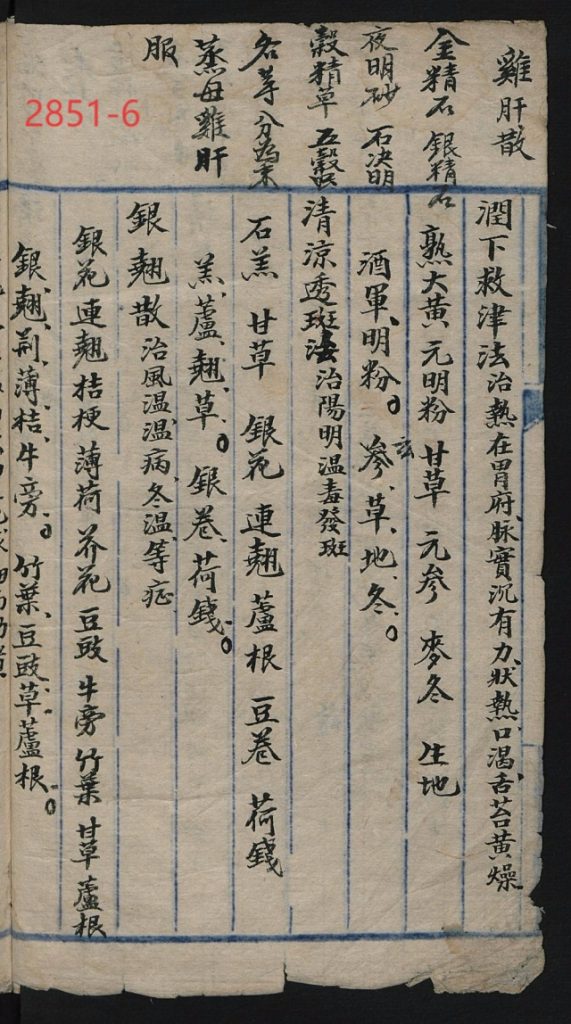 2851-6
雞肝散
金精石 銀精石
夜明砂 石决明
穀精草 五穀虫
各等分為末
蒸母雞肝
服
潤下救津法治熱在胃府、脉實沉有力、狀熱、口渴、舌苔黄燥
熟大黄 元明粉 甘草 元參 麥冬 生地
酒軍、明粉。玄參、草、地、冬。
清凉透斑法治陽明温毒發斑
石羔 甘草 銀花 連翹 蘆根 豆卷 荷錢
羔、蘆、翹、草。銀、卷、荷錢。
銀翹散治風温、温病、冬温、等症
銀花 連翹 桔梗 薄荷 芥花 豆豉 牛旁 竹葉 甘草 蘆根
銀、翹、荆、薄、桔、牛旁。竹葉、豆豉、草、蘆根。